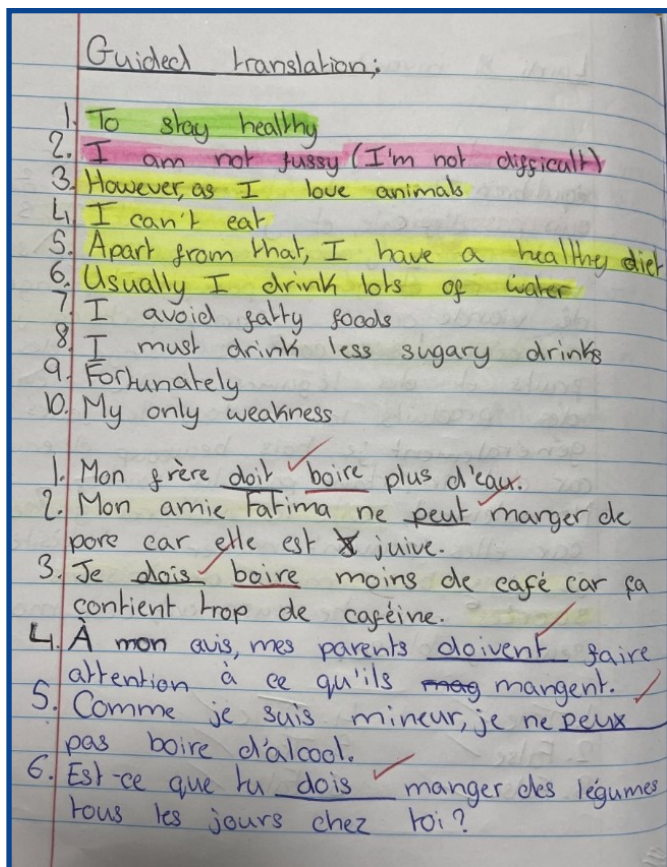 Guided translation;
1. To stay healthy
2. I am not fussy (I'm not difficult)
3. However, as I love animals
4. I can't eat
5. Apart from that, I have a healthy diet
6. Usually I drink lots of water
7. I avoid fatty foods
8. I must drink less sugary drinks
9. Fortunately
10. My only weakness
1. Mon frère doit boire plus d'eau.
2. Mon amie Fatima ne peut manger de
porc car elle est juive.
3. Je dois boire moins de café car ça
contient trop de caféine.
4. À mon avis, mes parents doivent faire
attention à ce qu'ils mangent.
5. Comme je suis mineur, je ne peux
pas boire d'alcool.
6. Est-ce que tu dois manger des légumes
tous les jours chez toi?